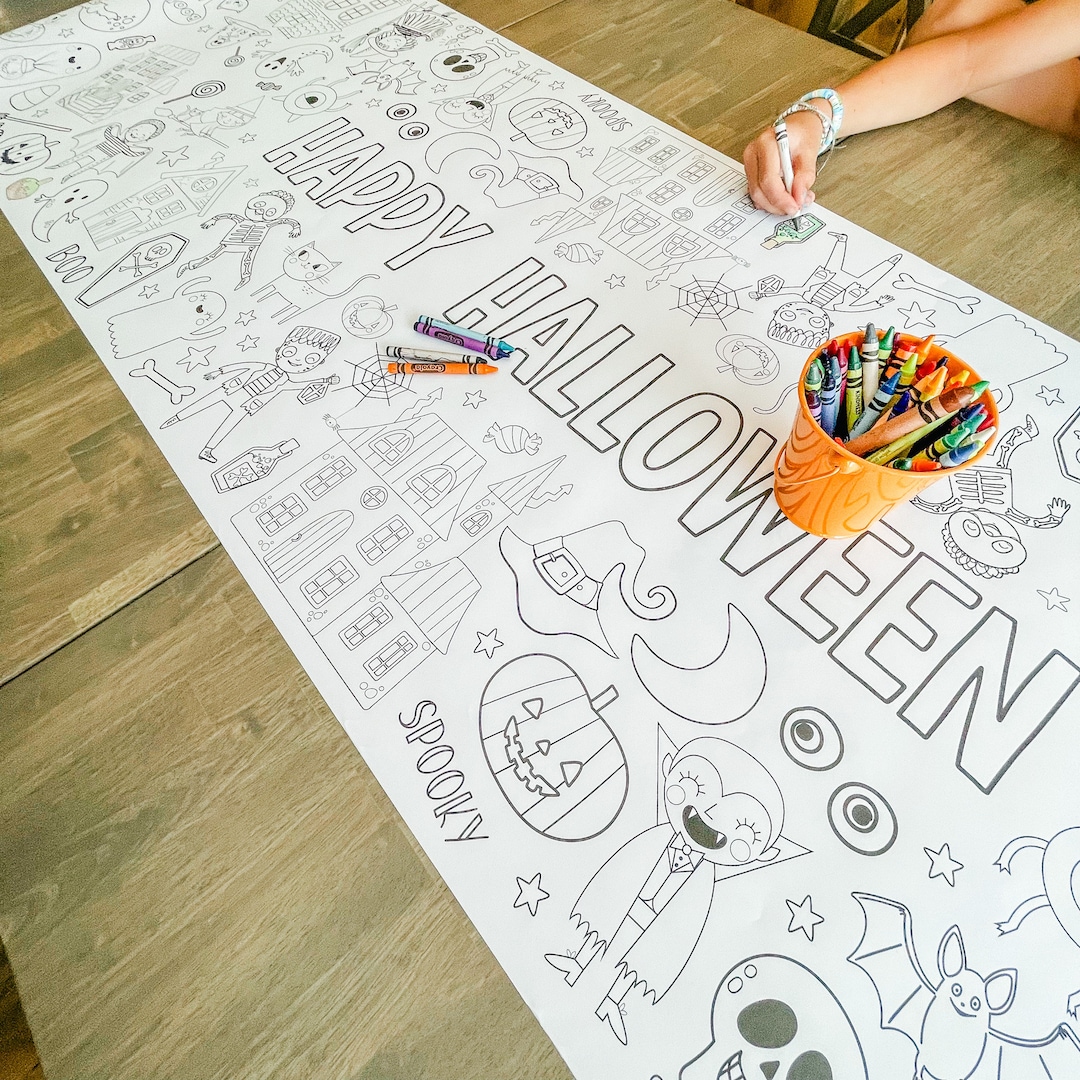 HAPPY HALLOWEEN
SPOOKY
BOO
SPOOKY
Crayola